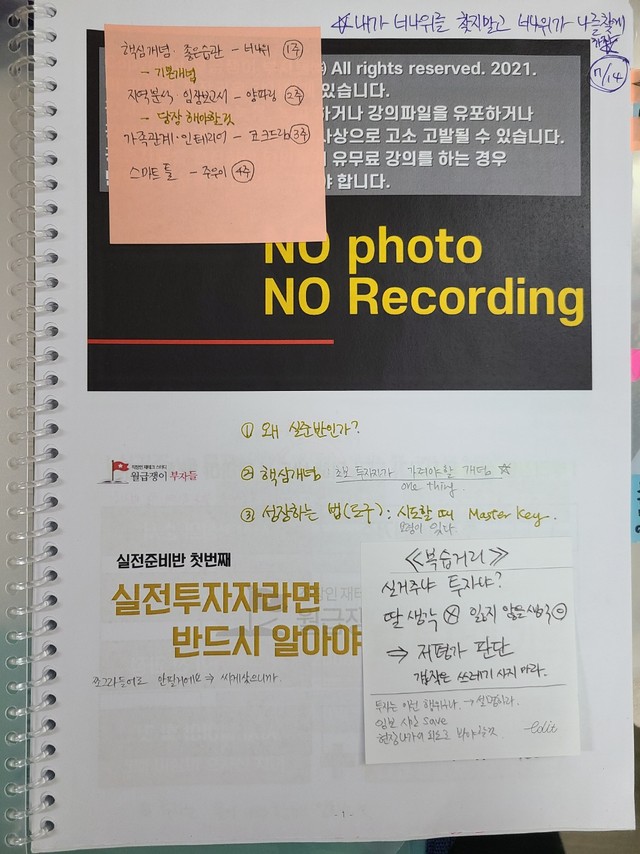 ☆ 내가 너나위를 찾지말고 너나위가 나를찾게
7/14
핵심개념·좋은습관 - 너나위 1주
- 기본개념
지역분석·임장보고서 - 양파링 2주
- 당장 해야할것
가족관계·인테리어 - 코크드림 3주
스마트툴 - 주우이 4주
All rights reserved. 2021.
있습니다.
하거나 강의파일을 유포하거나
사상으로 고소 고발될 수 있습니다.
유무료 강의를 하는 경우
합니다.
NO photo
NO Recording
① 왜 실준반인가?
월급쟁이 부자들
② 핵심개념 : 초보 투자자가 가져야할 개념 ☆
one thing
③ 성장하는 법(도구) : 시도할 때 Master Key.
요령이 있다
실전준비반 첫번째
실전투자자라면
반드시 알아야
쪼그라들어도 안팔거에요 → 싸게샀으니까.
≪복습거리≫
실거주냐 투자냐?
딴 생각 ⓧ 잃지 않을생각 ⓞ
⇒ 저평가 판단
쓰레기 사지 마라.
투자는 어떤 행위인가. → 설명하라.
save
현장 나가
edit
- 1 -